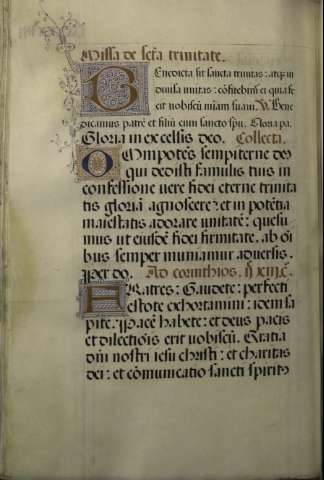 Missa de sc̄ta trinitate.
Benedicta sit sancta trinitas: atq; in
diuisa unitas: cōfitebim̄ ei quia fe
cit nobiscū mīam suam. V. Bene
dicamus patrē et filiū cum sancto spū. Gloria pa.
Gloria in excelsis deo. Collecta.
Omnipotēs sempiterne de9
qui dedisti famulis tuis in
confessione uere fidei eterne trinita
tis gloriā agnoscere: et in potētia
maiestatis adorare unitatē: quesu
mus ut eiusdē fidei firmitate. ab oī
bus semper muniamur aduersis.
per do. Ad corinthios. ii xiii. c.
Fratres: Gaudete: perfecti
estote exhortamini: idem sa
pite. Pacē habete: et deus pacis
et dilectiōis erit uobiscū. Gratia
dn̄i nostri iesu christi: et charitas
dei: et cōmunicatio sancti spirit9